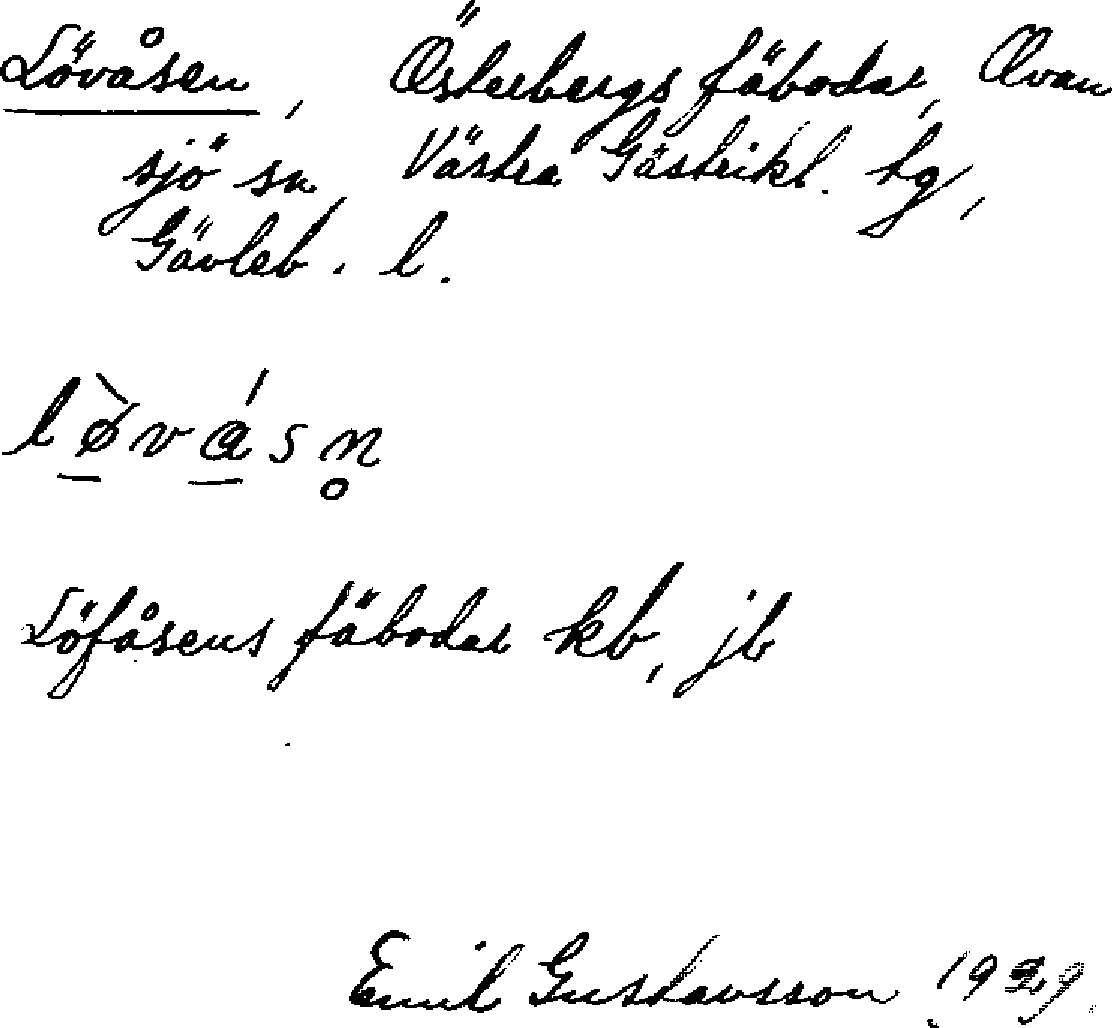 Lövåsen, Österbergs fäbodar, Ovan
sjö sn, Västra Gästrikl. tg,
Gävleb. l.
lø̀vásn̥
Löfåsens fäbodar kb, jb
Emil Gustavsson 1929.